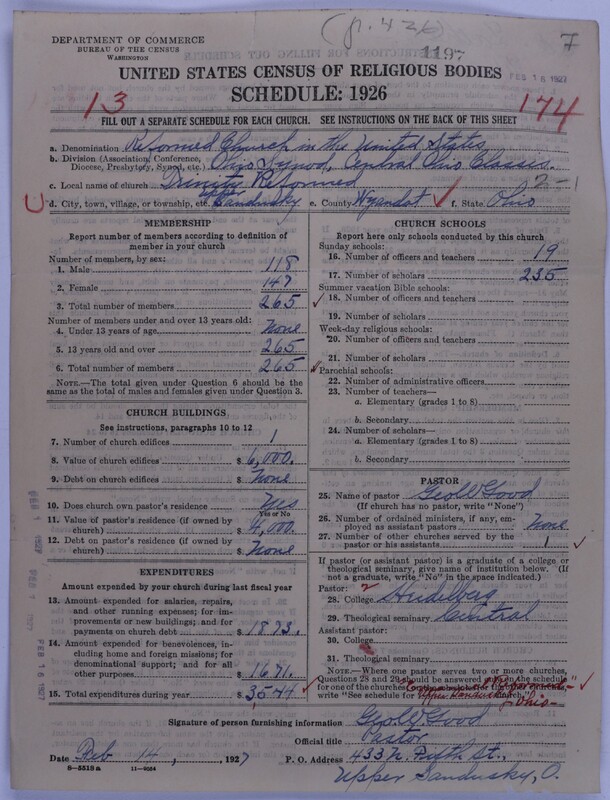 (p. 426)
7
DEPARTMENT OF COMMERCE
BUREAU OF THE CENSUS
WASHINGTON
1197
FEB 16 1927
UNITED STATES CENSUS OF RELIGIOUS BODIES
SCHEDULE: 1926
13
174
FILL OUT A SEPARATE SCHEDULE FOR EACH CHURCH. SEE INSTRUCTIONS ON THE BACK OF THIS SHEET
a. Denomination Reformed Church in the United States
b. Division (Association, Conference,
Diocese, Presbytery, Synod, etc.) Ohio Synod, Central Ohio Classis.
c. Local name of church Trinity Reformed
2-1
d. City, town, village, or township, etc. Upper Sandusky e. County Wyandot f. State Ohio
MEMBERSHIP
Report number of members according to definition of
member in your church
Number of members, by sex:
1. Male 118
2. Female 147
3. Total number of members 265
Number of members under and over 13 years old:
4. Under 13 years of age None
5. 13 years old and over 265
6. Total number of members 265
NOTE.—The total given under Question 6 should be the
same as the total of males and females given under Question 3.
CHURCH BUILDINGS
See instructions, paragraphs 10 to 12
7. Number of church edifices 1
8. Value of church edifices $ 6,000.
9. Debt on church edifices $ None
10. Does church own pastor's residence Yes
Yes or No
11. Value of pastor's residence (if owned by
church) $ 4,000.
12. Debt on pastor's residence (if owned by
church) $ None
EXPENDITURES
Amount expended by your church during last fiscal year
13. Amount expended for salaries, repairs,
and other running expenses; for im-
provements or new building; and for
payments on church debt $ 1873.
14. Amount expended for benevolences,
including home and foreign missions; for
denominational support; and for all
other purposes $ 1671.
15. Total expenditures during year $ 3544
CHURCH SCHOOLS
Report here only schools conducted by this church
Sunday schools:
16. Number of officers and teachers 19
17. Number of scholars 235
Summer vacation Bible schools:
18. Number of officers and teachers
19. Number of scholars
Week-day religious schools:
20. Number of officers and teachers
21. Number of scholars
Parochial schools:
22. Number of administrative officers
23. Number of teachers—
a. Elementary (grades 1 to 8)
b. Secondary
24. Number of scholars—
a. Elementary (grades 1 to 8)
b. Secondary
PASTOR
25. Name of pastor Geo W Good
(If church has no pastor, write "None")
26. Number of ordained ministers, if any, em-
ployed as assistant pastors None
27. Number of other churches served by the
pastor or his assistants 1
If pastor (or assistant pastor) is a graduate of a college or
theological seminary, give name of institution below. (If
not a graduate, write "No" in the space indicated.)
Pastor:
28. College Heidelberg
29. Theological seminary Central
Assistant pastor:
30. College
31. Theological seminary
NOTE.—Where one pastor serves two or more churches,
Questions 28 and 29 should be answered
for one of the churches
write "See schedule for Upper Sandusky
Ohio
Signature of person furnishing information Geo W Good
Official title Pastor
Date Feb 14, 1927 P. O. Address 433 N. Fifth St.,
Upper Sandusky, O.
8—5518a 11—9054
FEB 16 1927